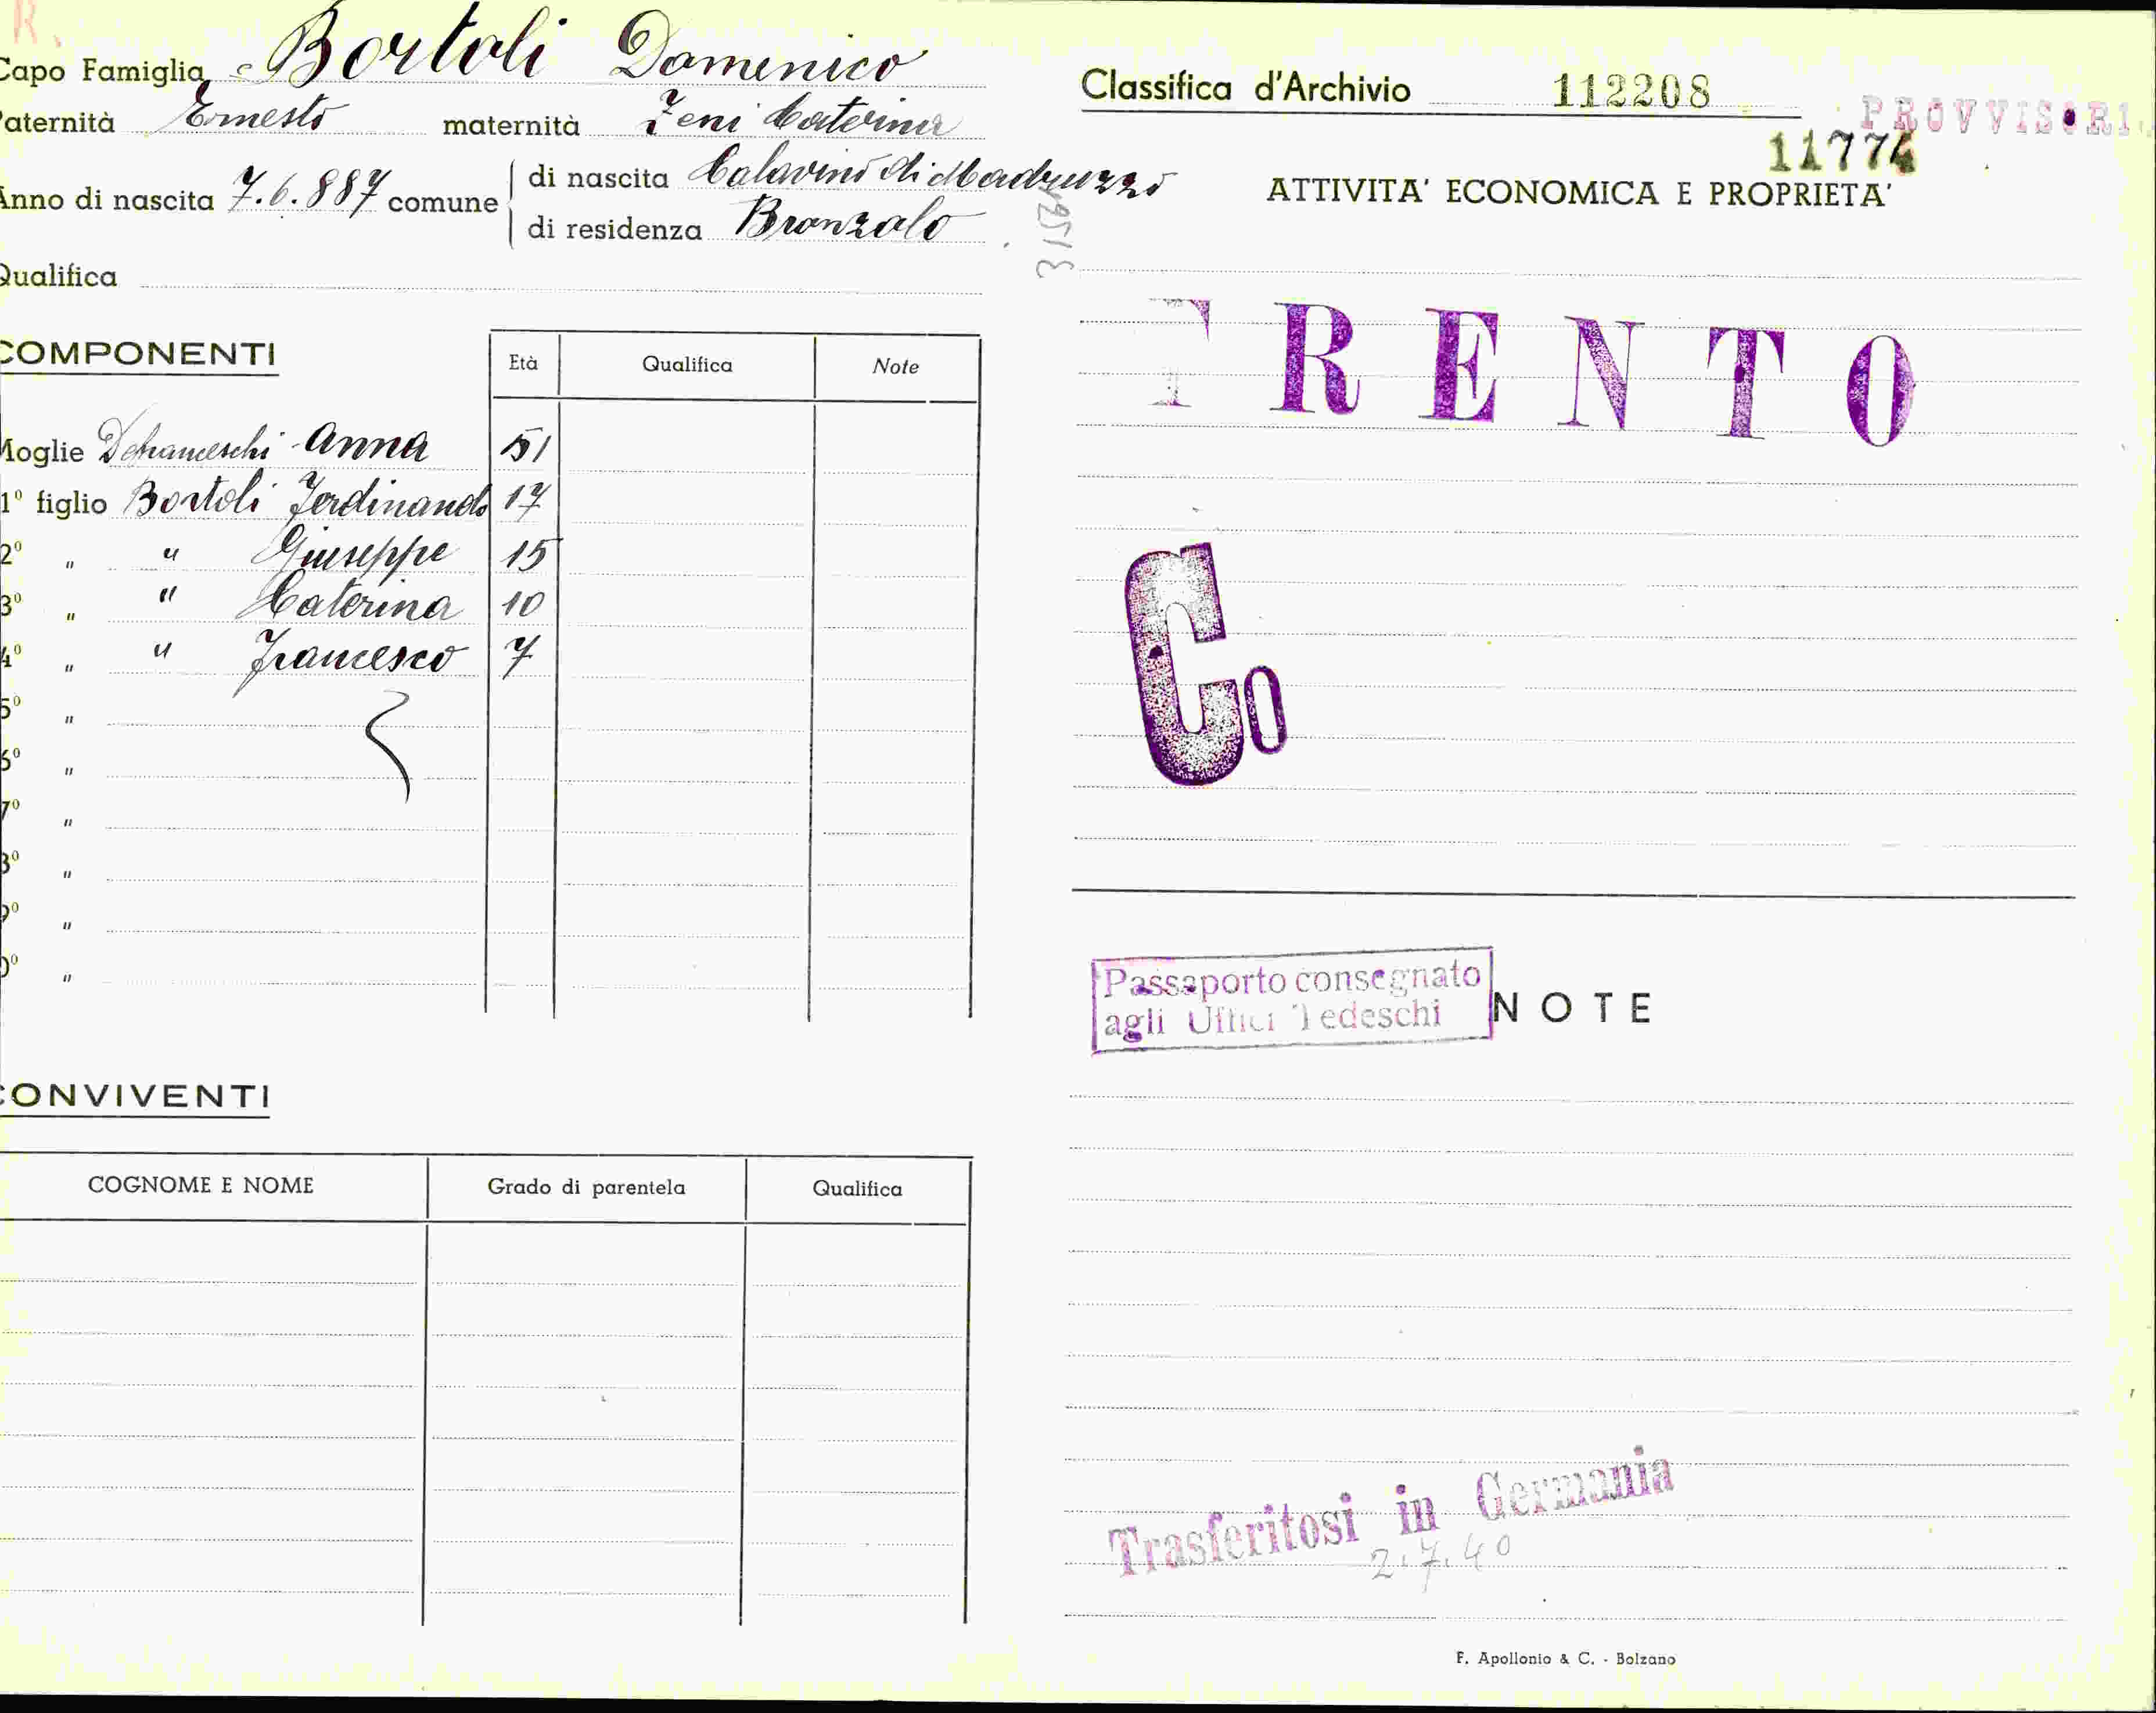 R.
Capo Famiglia Bortoli Domenico
Paternità Ernesto maternità Zeni Caterina
Anno di nascita 7.6.887 comune di nascita Calavino di Madruzzo
di residenza Bronzolo
Qualifica
COMPONENTI
Età Qualifica Note
Moglie Defranceschi Anna 51
1º figlio Bortoli Ferdinando 17
2º " " Giuseppe 15
3º " " Caterina 10
4º " " Francesco 7
5º "
6º "
7º "
8º "
9º "
10º "
CONVIVENTI
COGNOME E NOME Grado di parentela Qualifica
Classifica d'Archivio 112208
PROVVISORI
11774
ATTIVITA' ECONOMICA E PROPRIETA'
TRENTO
Co
Passaporto consegnato
agli Uffici Tedeschi
NOTE
Trasferitosi in Germania
2.7.40
F. Apollonio & C. - Bolzano